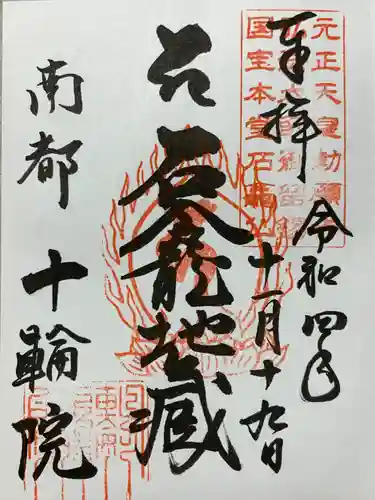 奉拝
令和四年
十一月十九日
石龕地蔵
南都 十輪院
元正天皇勅願
国宝本堂石龕仏